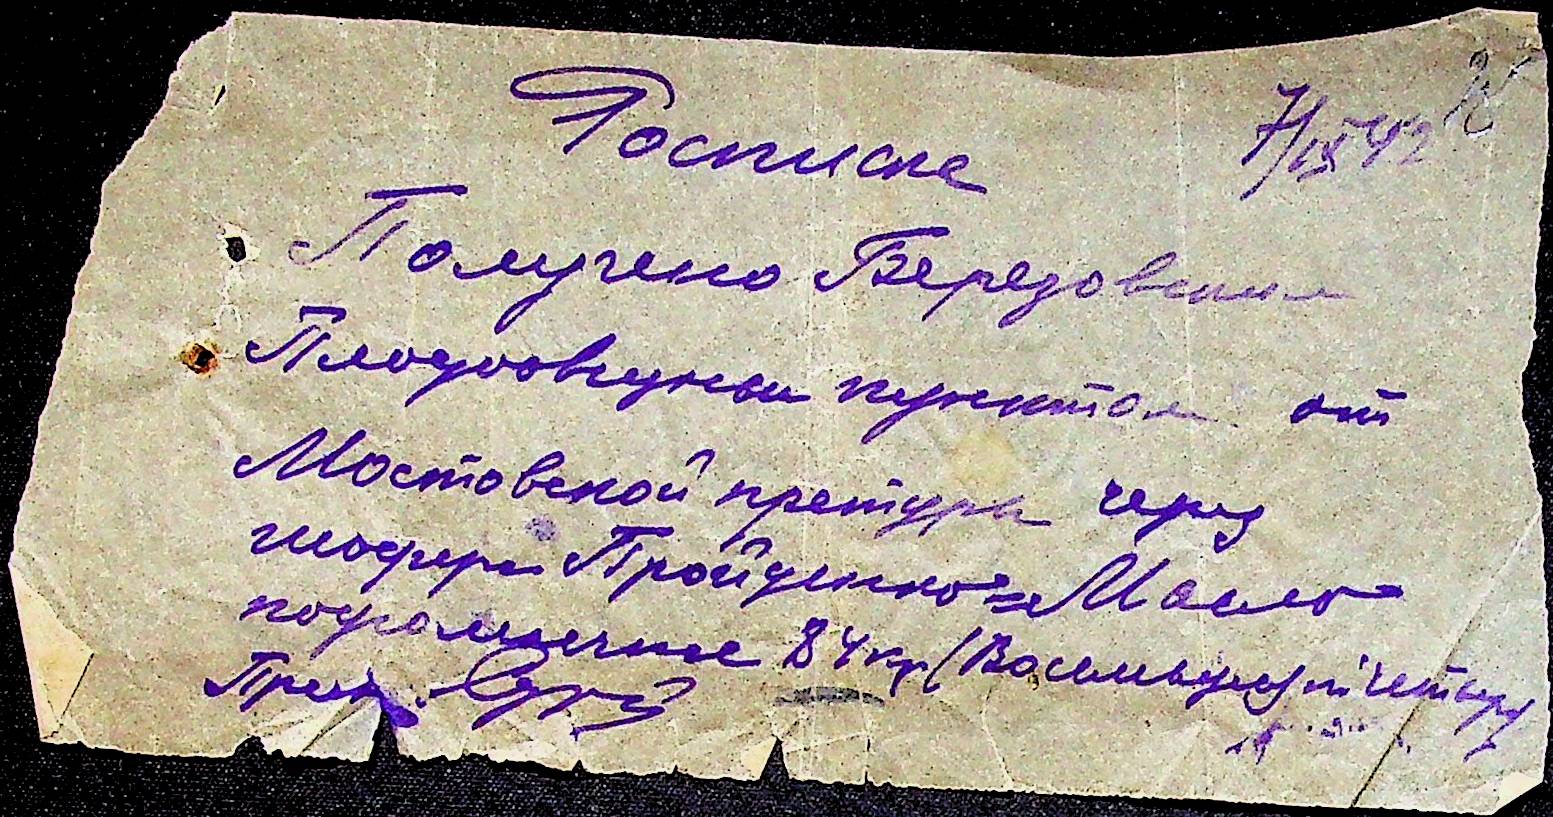 Росписка 7/IX 42
Получено Березовским
Плодоовощным пунктом от
Мостовской претуры через
шофера Пройденко Масло
подсолнечное 84 кг (Восемьдесят четыре